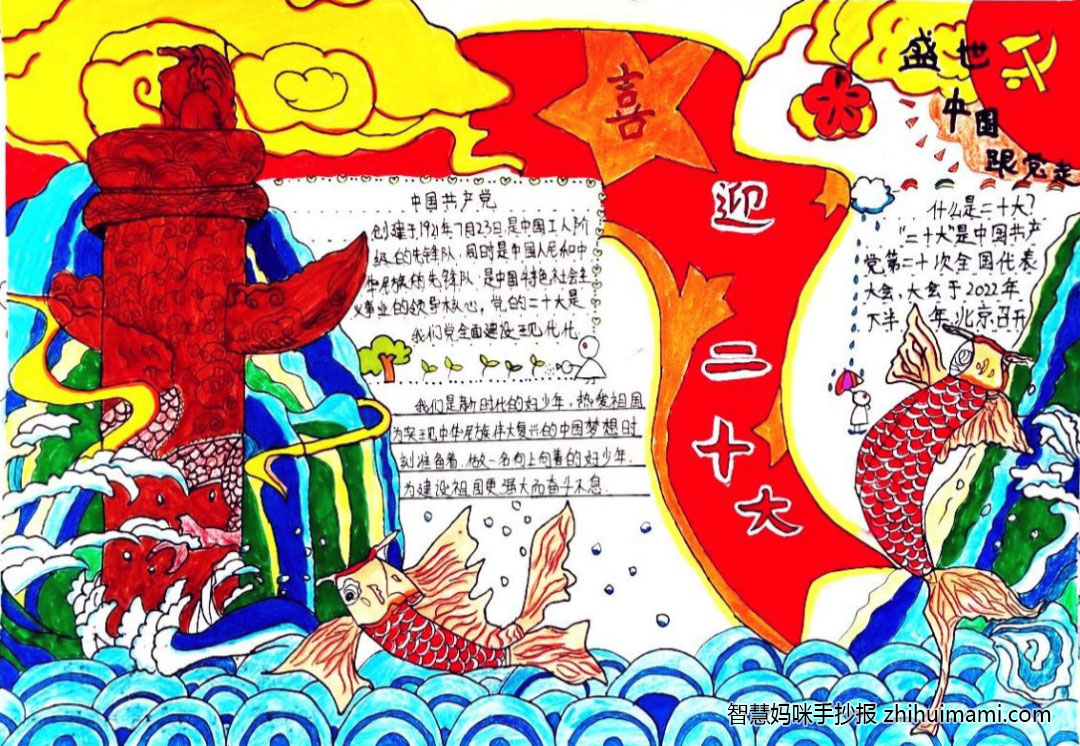 盛世
中国
跟党走
喜
迎
二
十
大
中国共产党
创建于1921年7月23日.是中国工人阶
级的先锋队,同时是中国人民和中
华民族的先锋队.是中国特色社会主
义事业的领导核心,党的二十大是
我们党全面建设现代化
我们是新时代的好少年,热爱祖国
为实现中华民族伟大复兴的中国梦想时
刻准备着.做一名向上向善的好少年.
为建设祖国更强大而奋斗不息.
什么是二十大?
“二十大”是中国共产
党第二十次全国代表
大会,大会于2022年
下半年,北京召开
智慧妈咪手抄报 zhihuimami.com